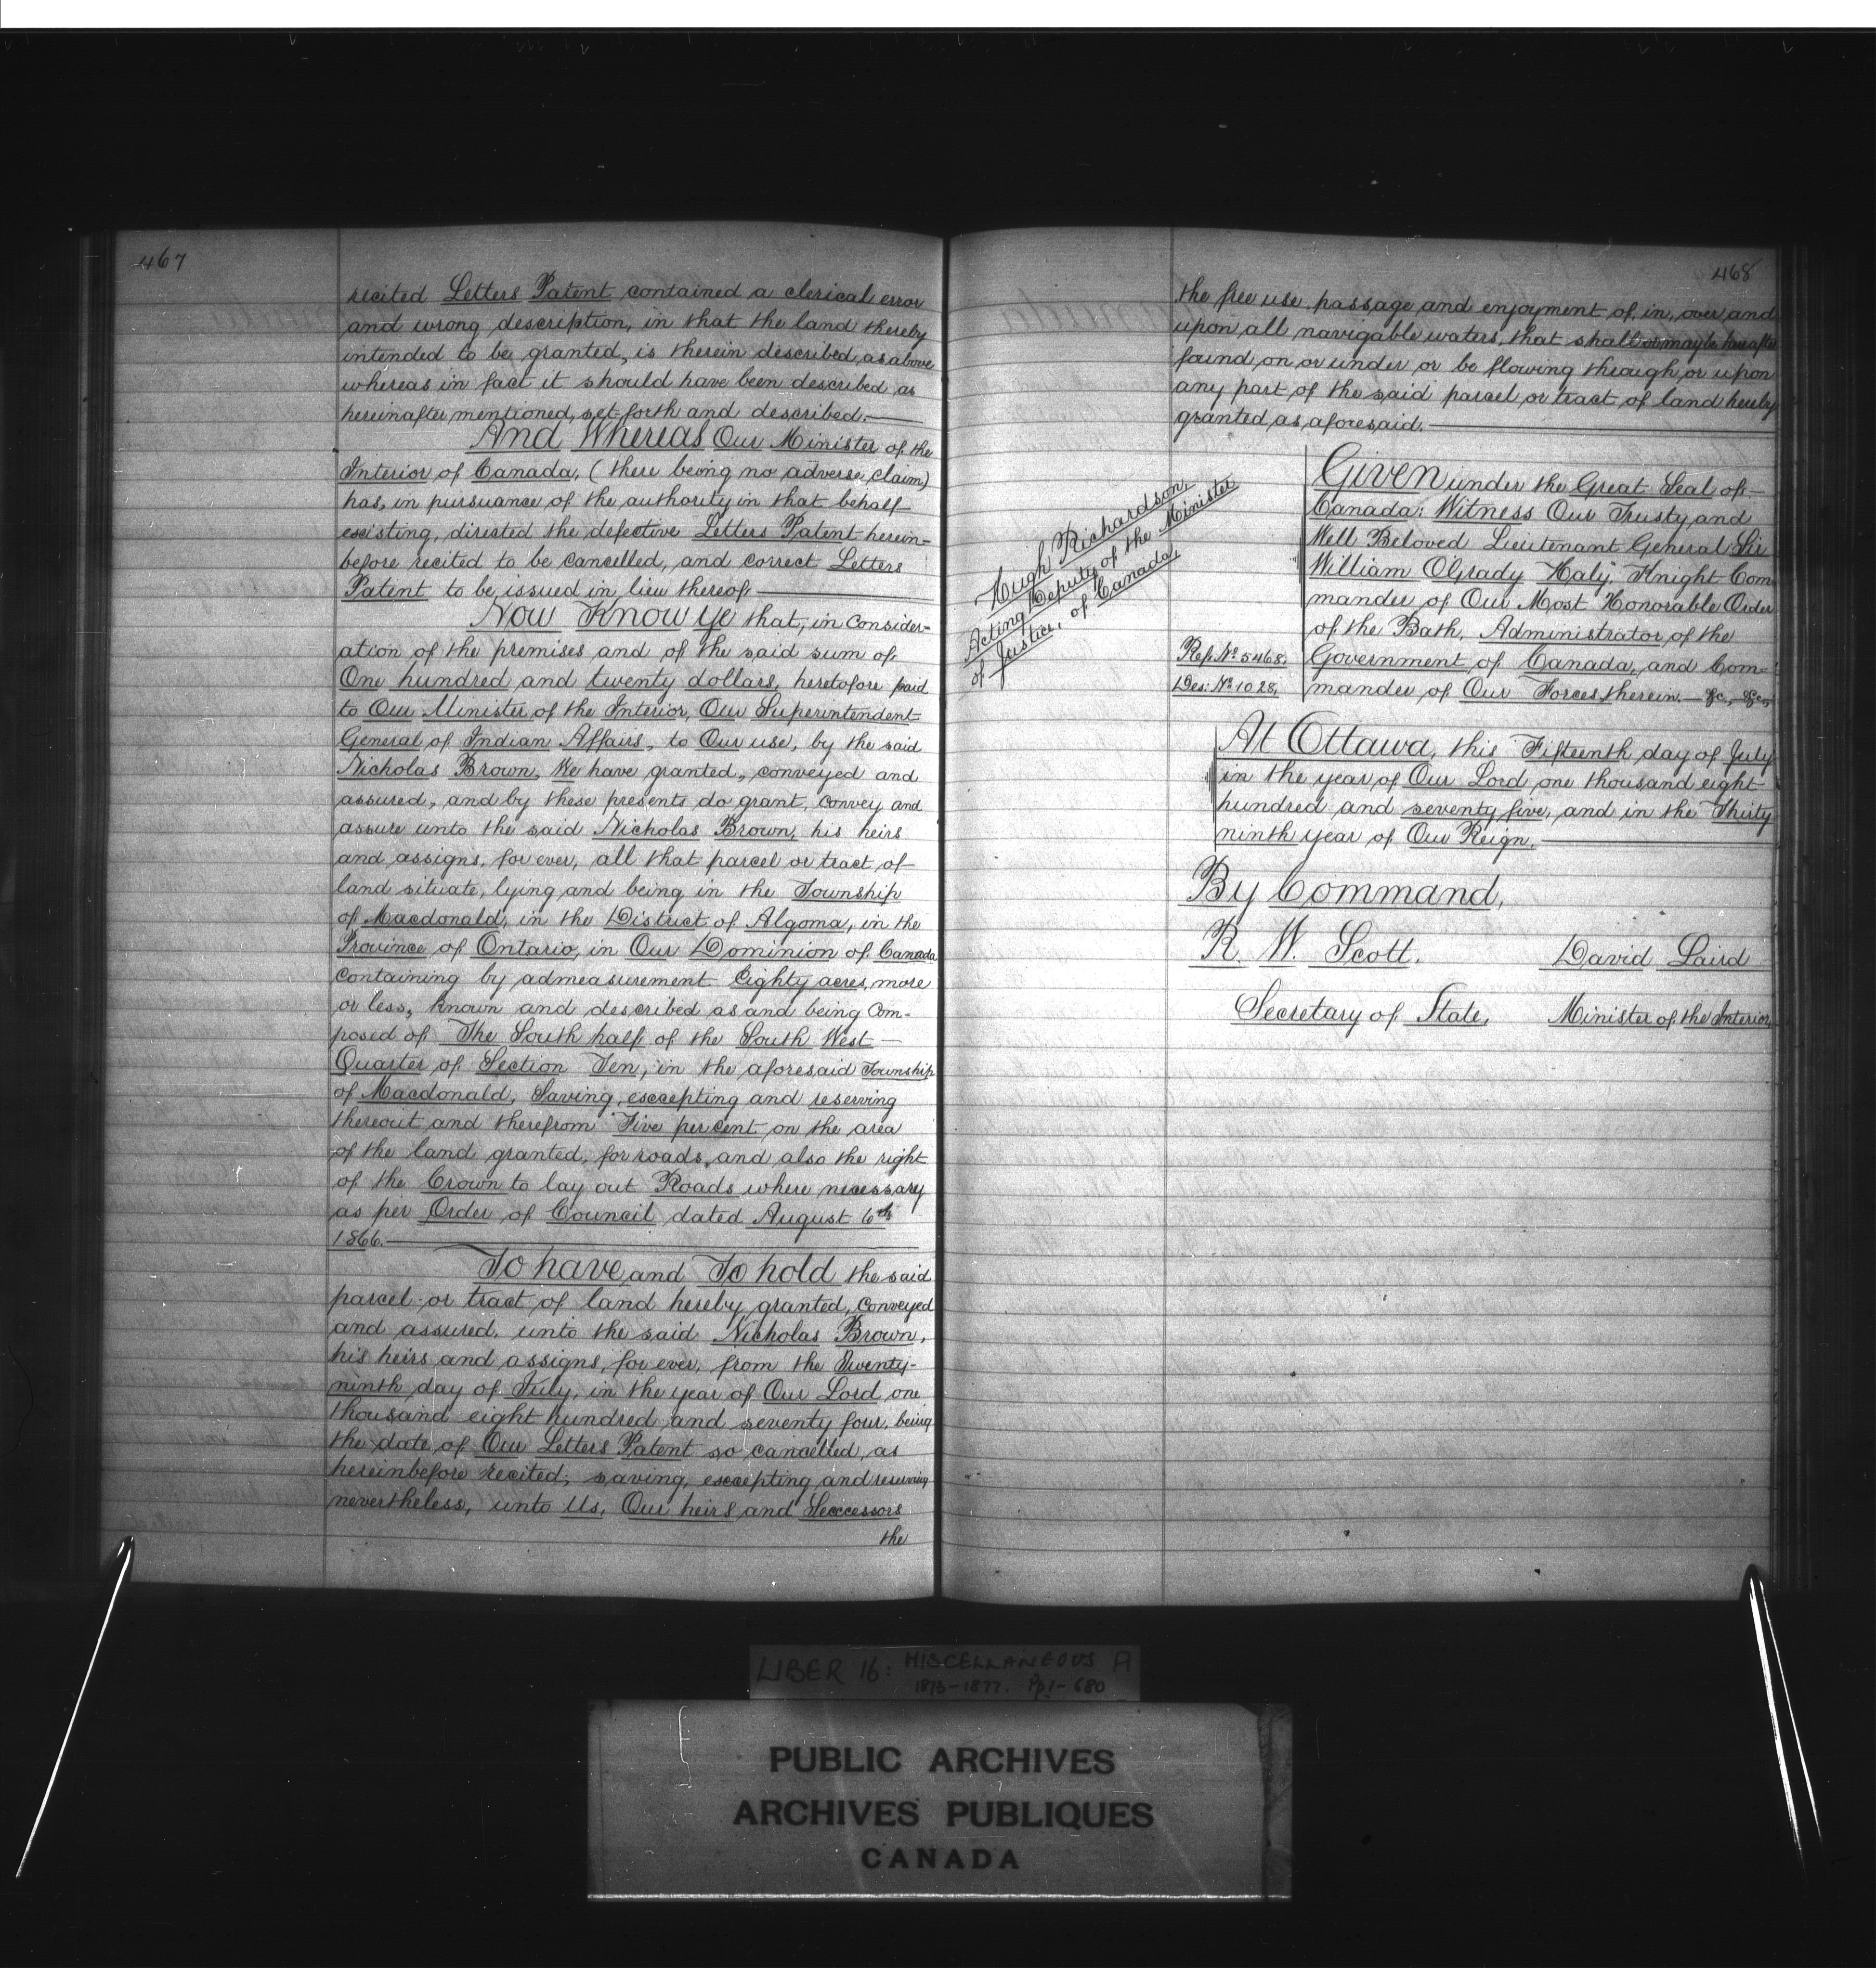 467
recited Letters Patent contained a clerical error
and wrong description, in that the land thereby
intended to be granted, is therein described, as above
whereas in fact it should have been described as
hereinafter mentioned, set forth and described.
And Whereas Our Minister of the
Interior of Canada, (there being no adverse claim)
has, in pursuance of the authority in that behalf
existing, directed the defective Letters Patent herein-
before recited to be cancelled, and correct Letters
Patent to be issued in lieu thereof.
Now Know Ye that, in consider-
ation of the premises and of the said sum of
One hundred and twenty dollars, heretofore paid
to Our Minister of the Interior, Our Superintendent
General of Indian Affairs, to Our use, by the said
Nicholas Brown, We have granted, conveyed and
assured, and by these presents do grant, convey and
assure unto the said Nicholas Brown, his heirs
and assigns, for ever, all that parcel or tract of
land situate, lying and being in the Township
of Macdonald, in the District of Algoma, in the
Province of Ontario, in Our Dominion of Canada
containing by admeasurement Eighty acres, more
or less, known and described as and being com-
posed of The South half of the South West
Quarter of Section Ten, in the aforesaid Township
of Macdonald, Saving, excepting and reserving
thereout and therefrom Five per cent on the area
of the land granted, for roads, and also the right
of the Crown to lay out Roads where necessary
as per Order of Council dated August 6th
1866.
To have and To hold the said
parcel or tract of land hereby granted, conveyed
and assured, unto the said Nicholas Brown,
his heirs and assigns, for ever, from the Twenty-
ninth day of July, in the year of Our Lord one
thousand eight hundred and seventy four, being
the date of Our Letters Patent so cancelled, as
hereinbefore recited; saving, excepting and reserving
nevertheless, unto Us, Our heirs and Seccessors
the
468
the free use, passage and enjoyment of, in, over and
upon all navigable waters, that shall or may be hereafter
found on or under or be flowing through or upon
any part of the said parcel or tract of land hereby
granted as aforesaid.
Hugh Richardson,
Acting Deputy of the Minister
of Justice, of Canada,
Given under the Great Seal of
Canada: Witness Our Trusty and
Well Beloved Lieutenant General Sir
William OGrady Haly, Knight Com
mander of Our Most Honorable Order
of the Bath, Administrator of the
Government of Canada, and Com-
mander of Our Forces therein. &c., &c.,
Ref. No. 5468,
Des: No. 1028,
At Ottawa, this Fifteenth day of July
in the year of Our Lord one thousand eight
hundred and seventy five, and in the Thirty
ninth year of Our Reign.
By Command,
R. W. Scott. David Laird
Secretary of State, Minister of the Interior,
LIBER 16: MISCELLANEOUS A
1873-1877. Pp 1-680
PUBLIC ARCHIVES
ARCHIVES PUBLIQUES
CANADA